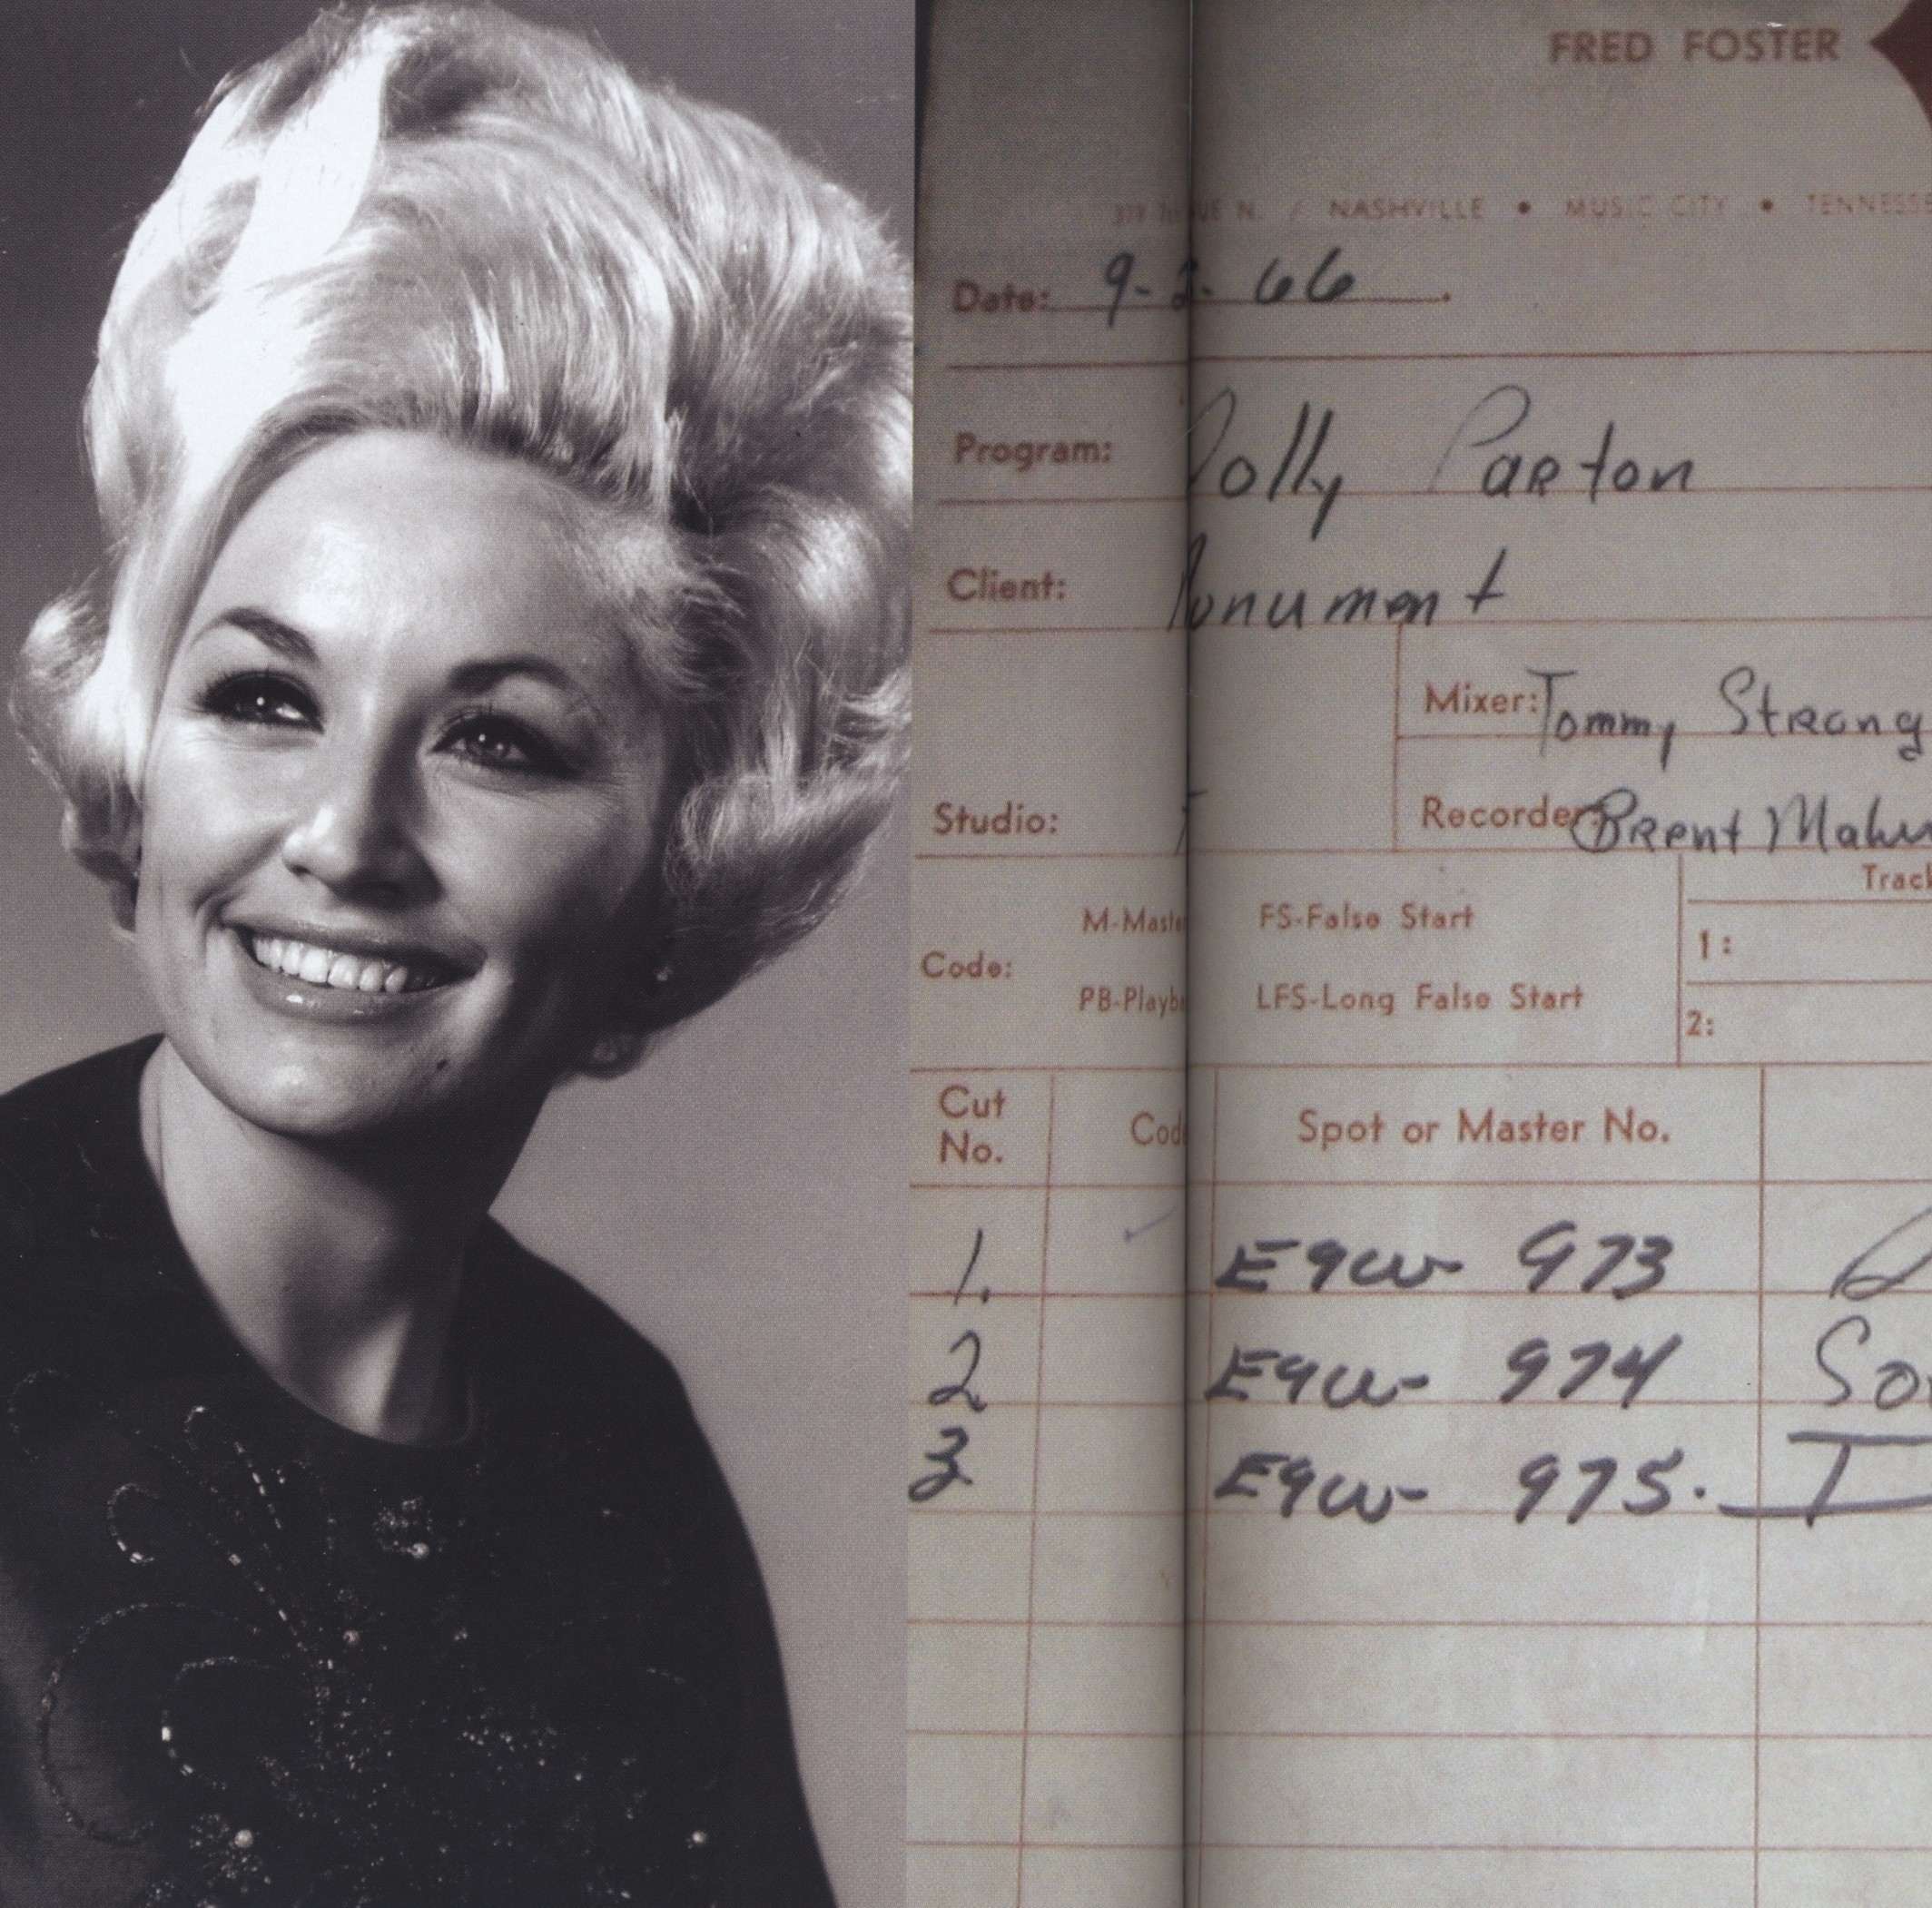 FRED FOSTER
UE N. / NASHVILLE • MUSIC CITY • TENNESSE
Date: 9-2-66
Program: Dolly Parton
Client: Monument
Mixer: Tommy Strong
Studio:
Recorder: Brent
Track
Code: M-Maste FS-False Start 1:
PB-Playba LFS-Long False Start 2:
Cut No. Cod Spot or Master No.
1. E9W- 973
2 E9W- 974 So
3 E9W- 975. I